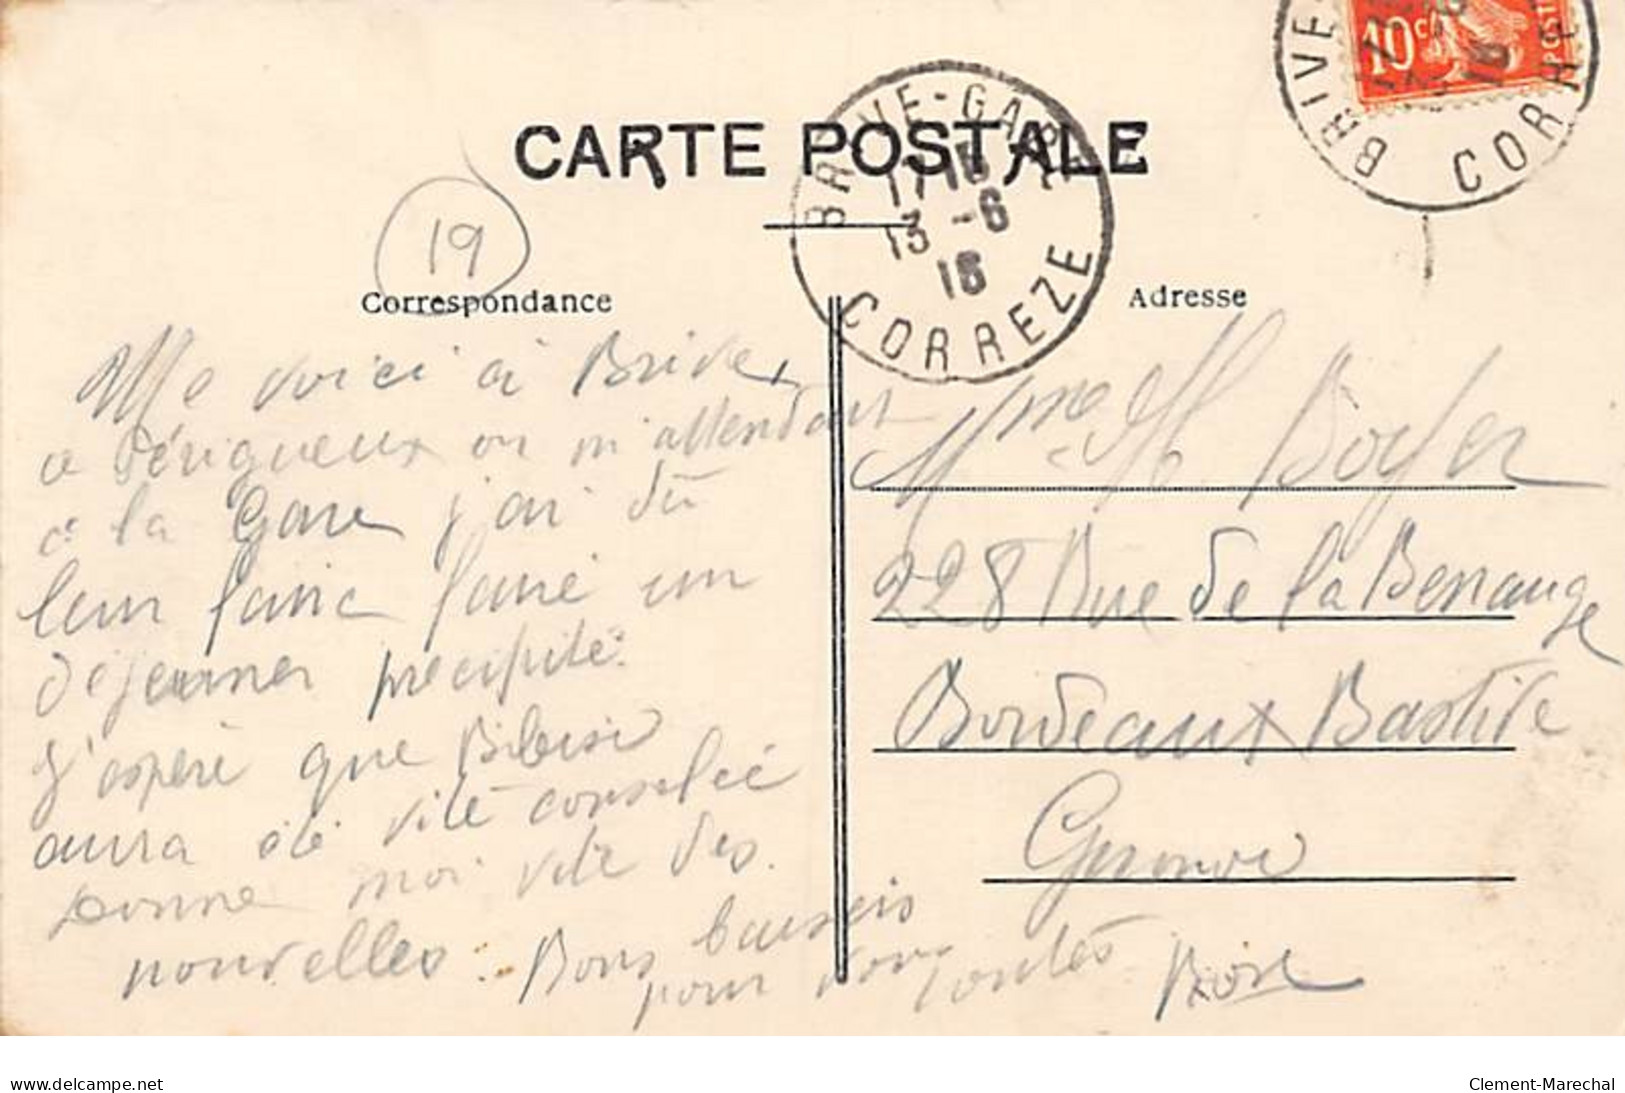 BRIVE
CORRE
10c
POSTE
16
CARTE POSTALE
BRIVE-GARE
17 15
13 -6
16
CORREZE
19
Correspondance
Adresse
Me voici à Brive,
a Périgueux on m'attendait
a la Gare j'ai dû
leur faire faire un
déjeuner précipité.
J'espère que
aura été vite
Donne moi vite des
nouvelles. Bons baisers
pour vous toutes
Mme H Boyer
228 Rue de la Benauge
Bordeaux Bastide
Gironde
delcampe.net
Clement-Marechal